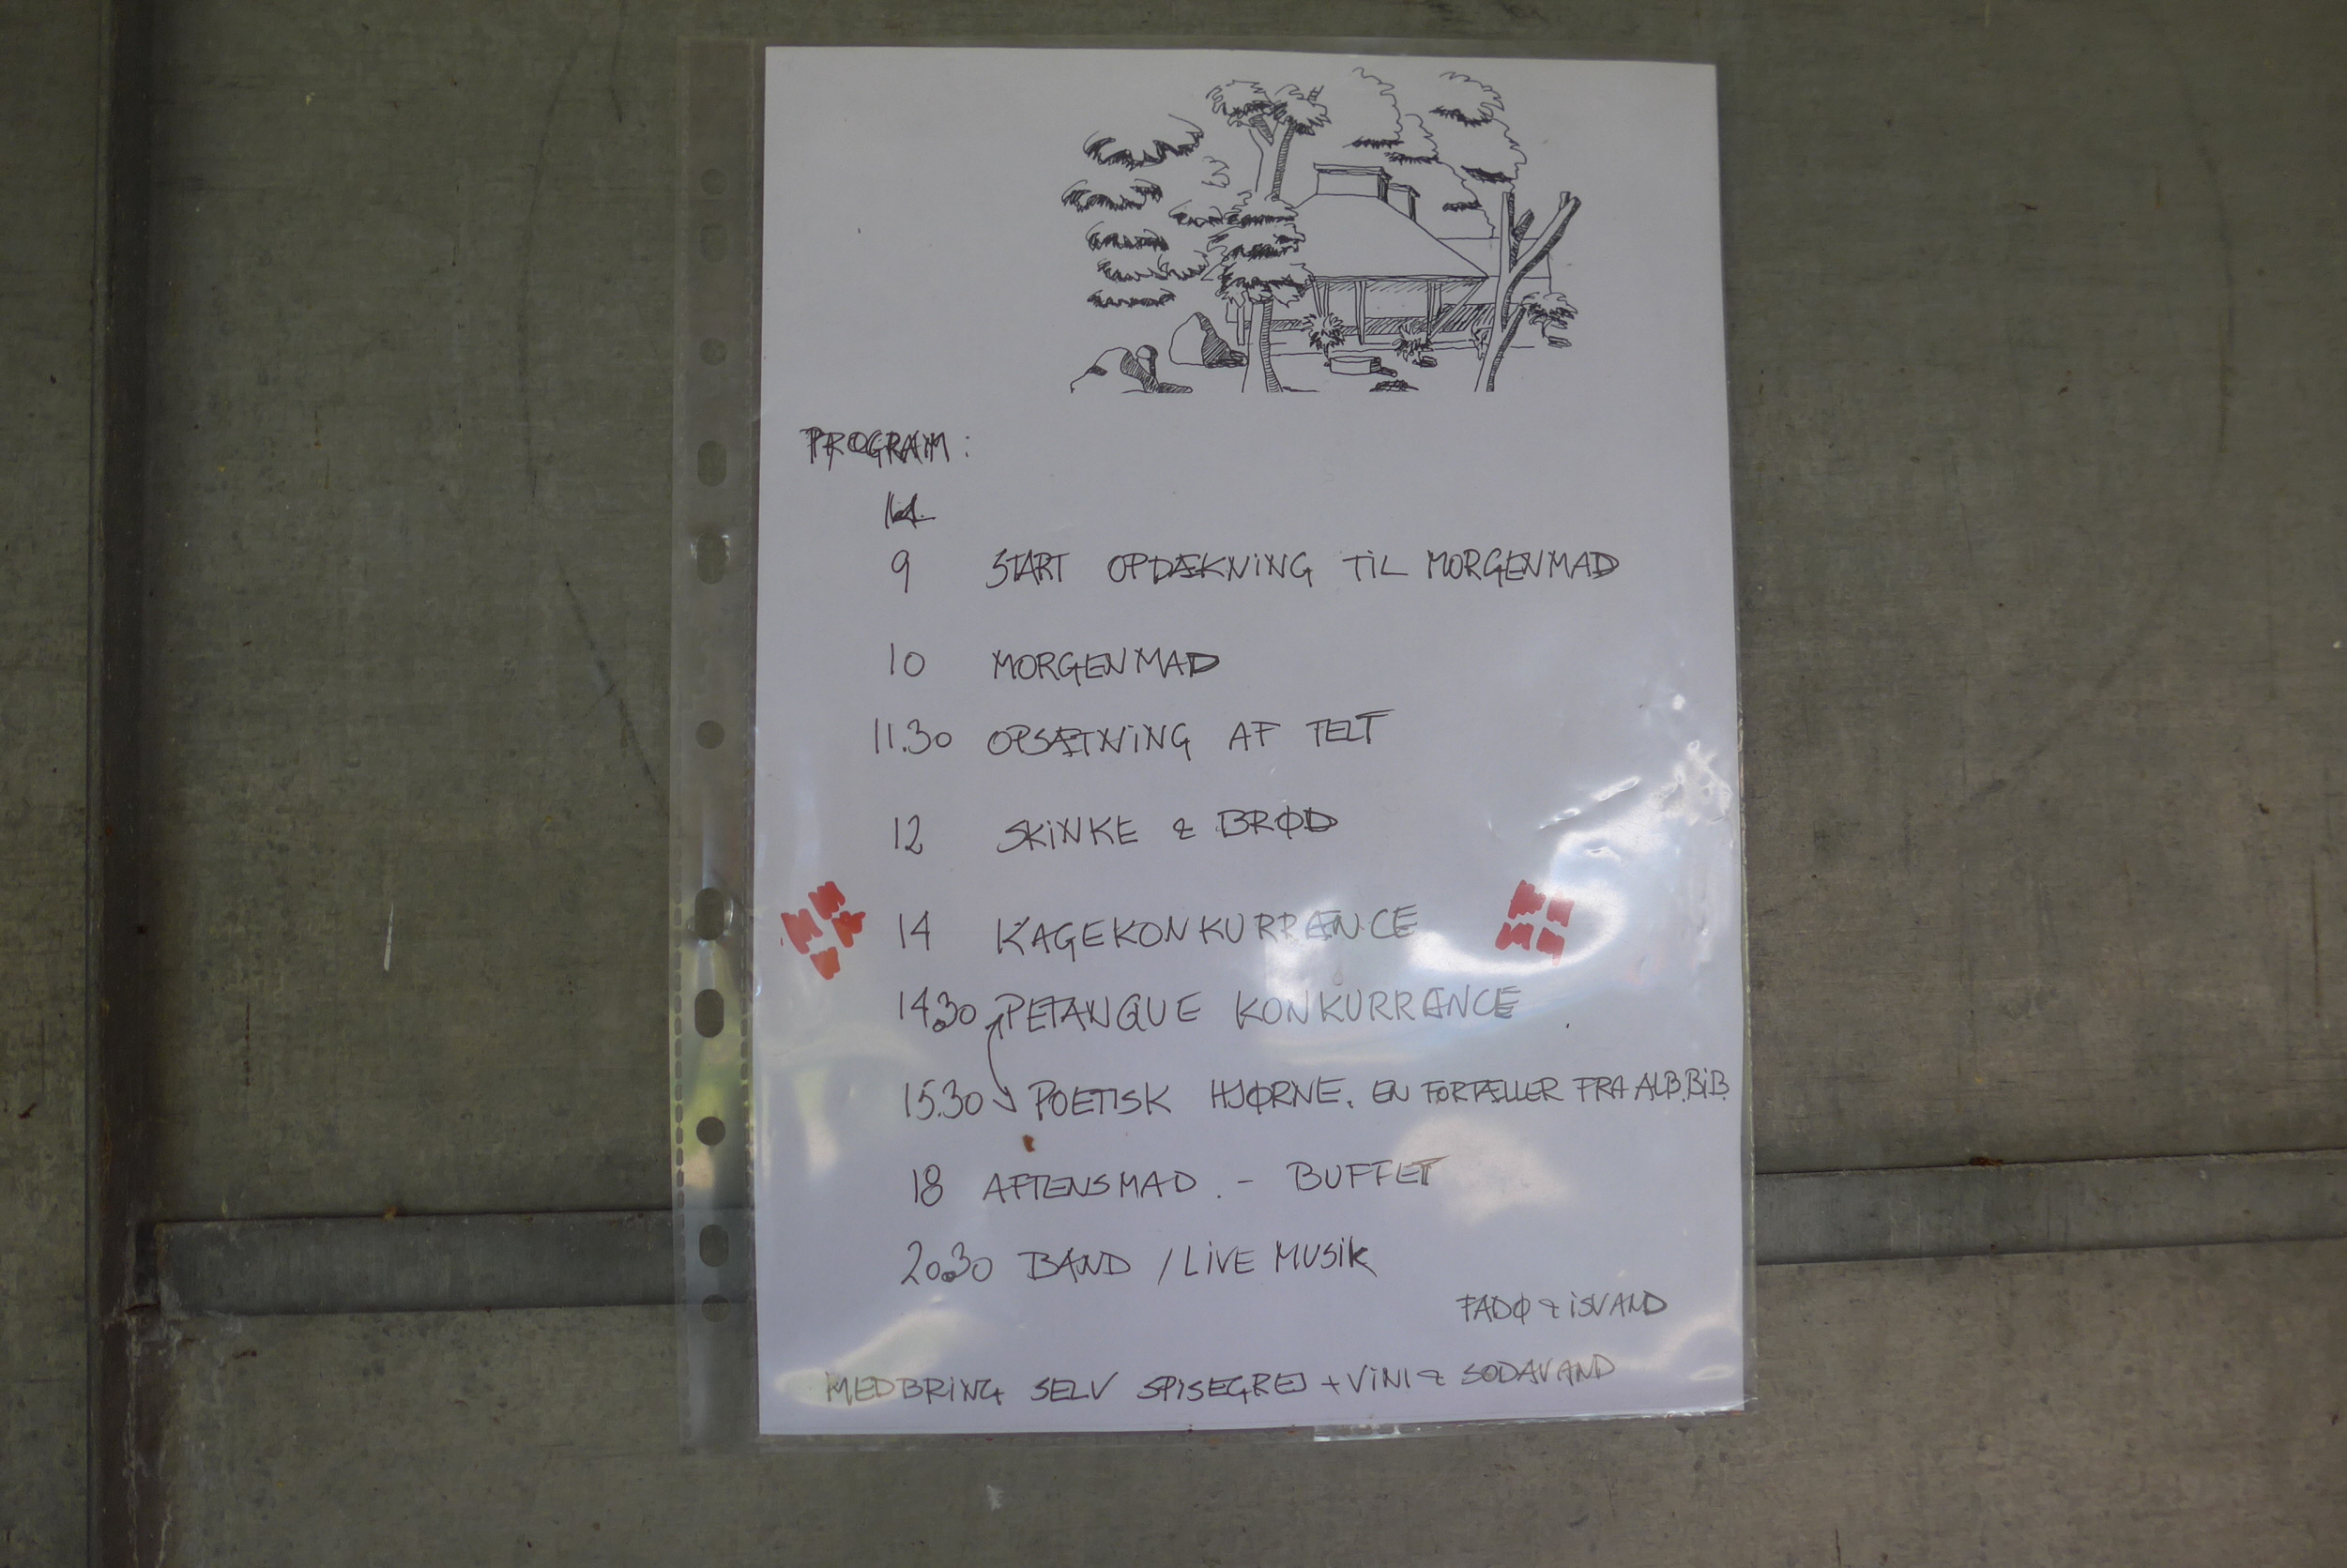 PROGRAM:
9 START OPDÆKNING TIL MORGENMAD
10 MORGENMAD
11.30 OPSÆTNING AF TELT
12 SKINKE & BRØD
14 KAGEKONKURRÆNCE
14.30 PETANQUE KONKURRÆNCE
15.30 POETISK HJØRNE. EN FORTÆLLER FRA ALB.BIB.
18 AFTENSMAD. - BUFFET
20.30 BAND / LIVE MUSIK
FADØ & ISVAND
MEDBRING SELV SPISEGREJ + VIN & SODAVAND